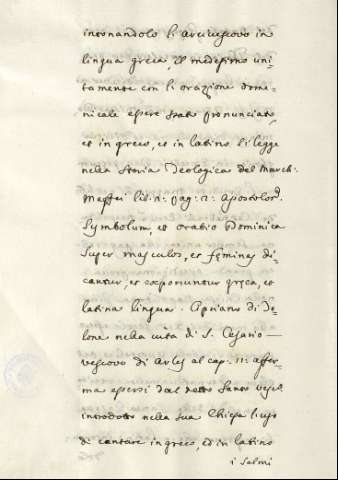 intonandolo l'Arcivescovo in
lingua greca, il medesimo uni=
tamente con l'orazione dome=
nicale essere stato pronunciato,
et in greco, et in latino si legge
nella storia Teologica del March:
Maffei lib. n: pag: 2: Apostolor.
Symbolum, et oratio Dominica
super masculos, et feminas di=
cantur, et exponuntur greca, et
latina lingua. Cipriano di To=
lone nella vita di S. Cesario
vescovo di Arles al cap: 11: affer=
ma essersi dal detto Santo vesc.
introdotto nella sua Chiesa l'uso
di cantare in greco, ed in latino
i salmi